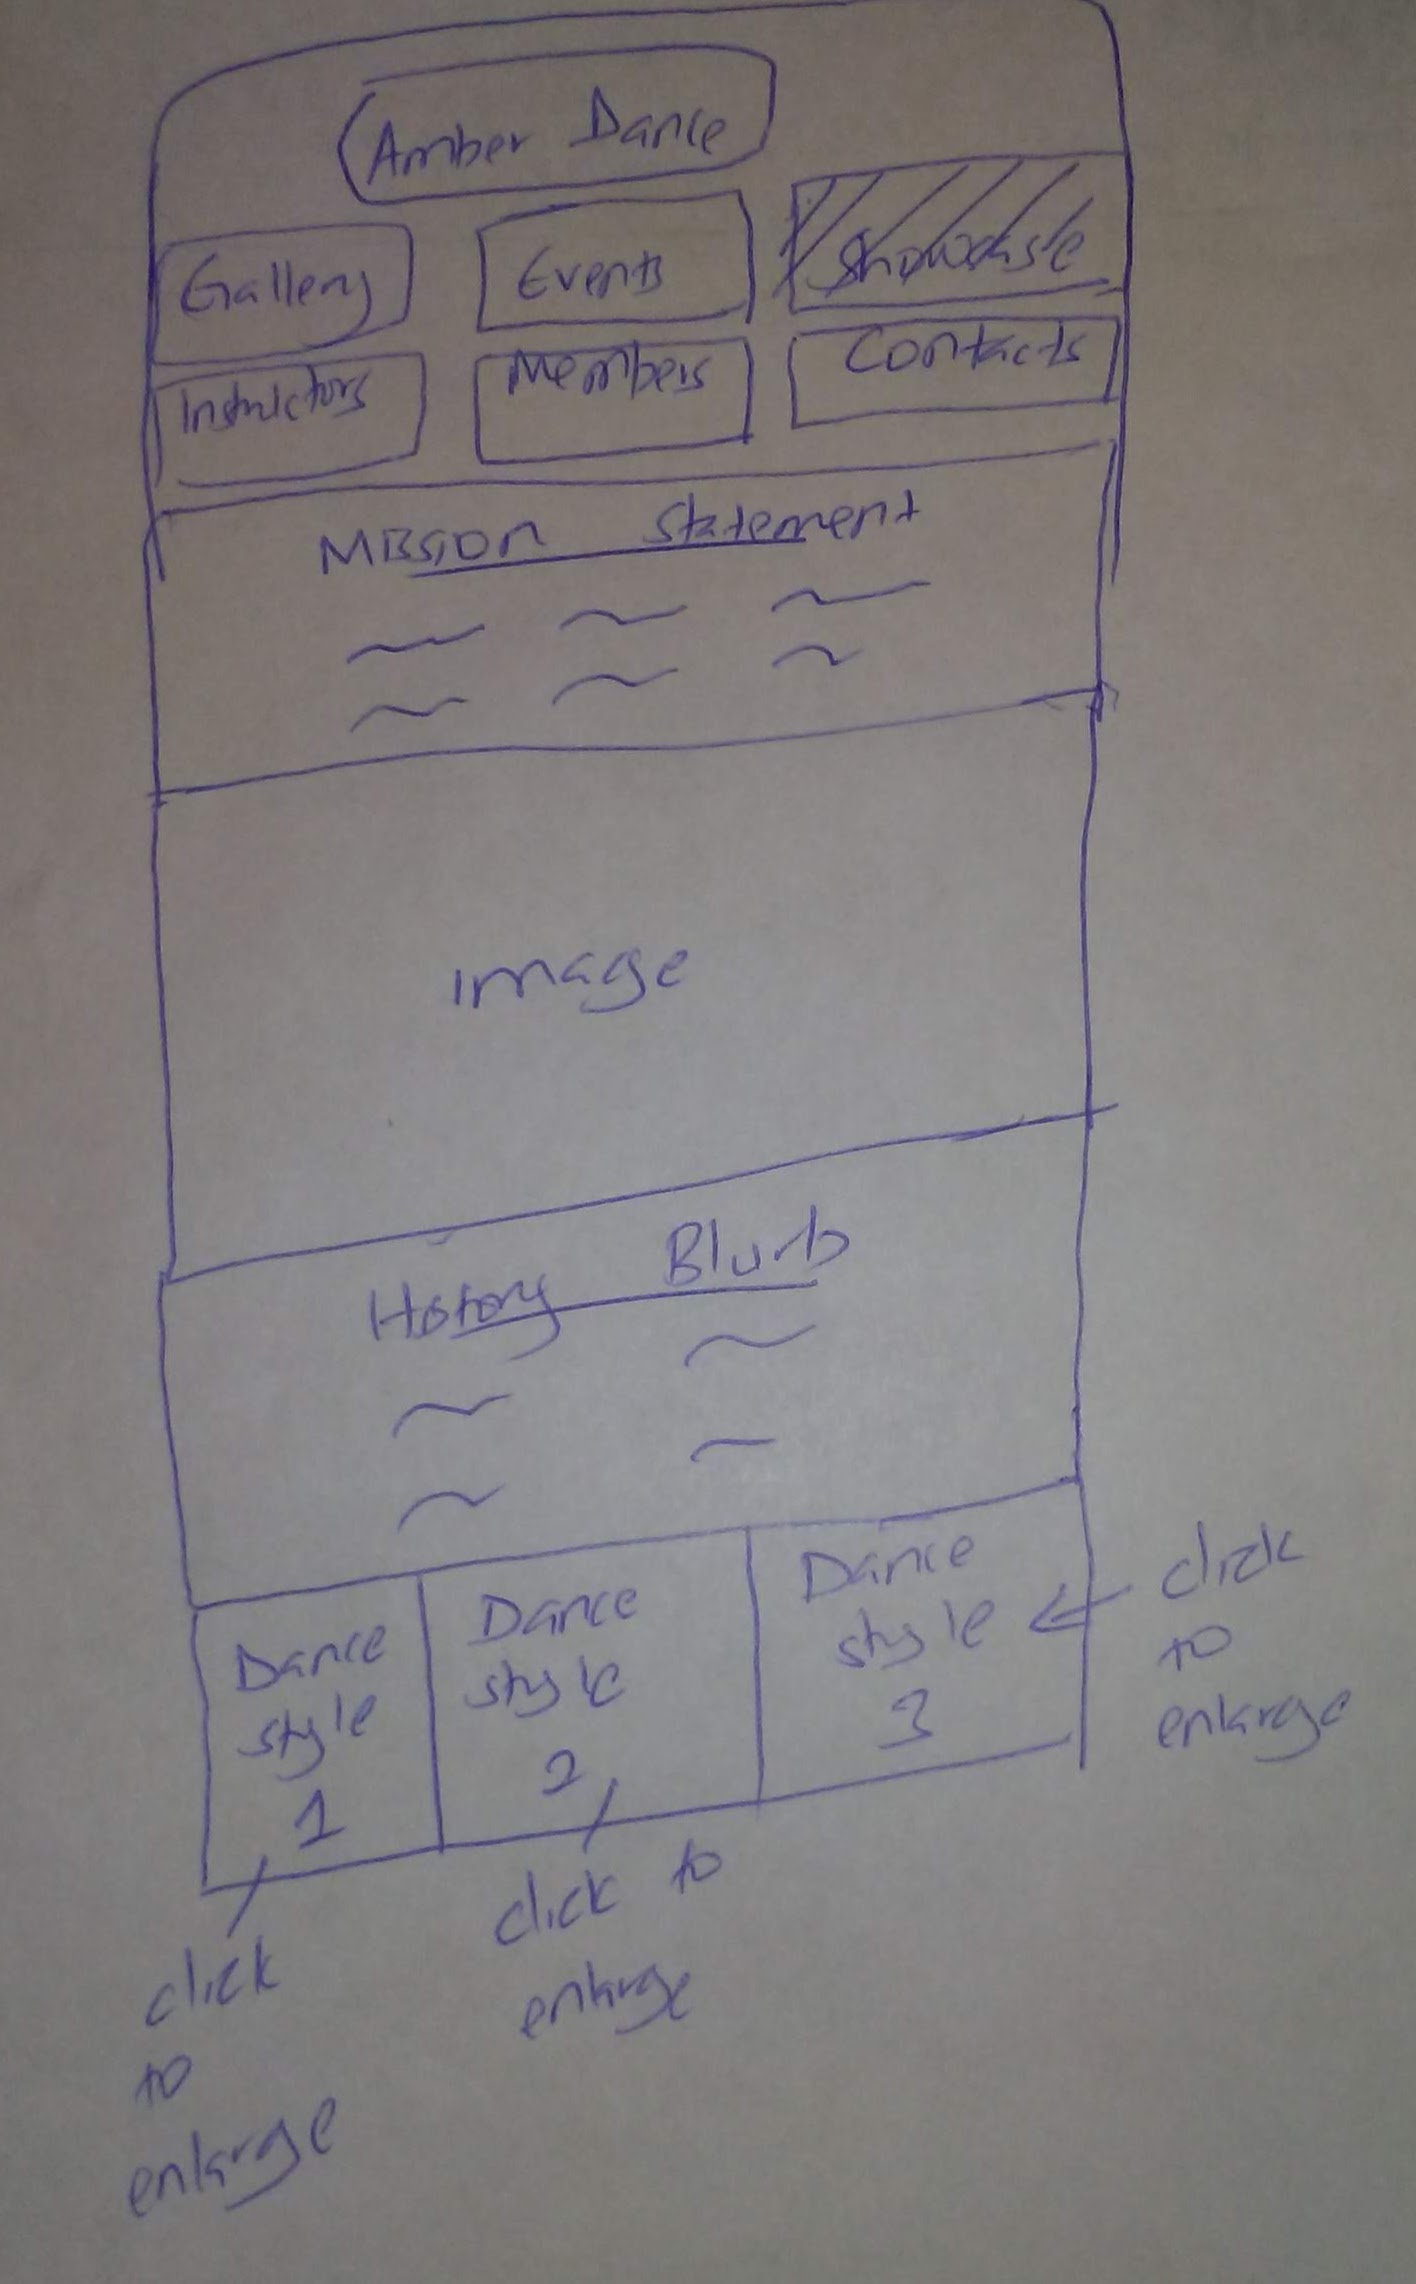 Amber Dance
Gallery Events Showcase
Instructors Members Contacts
Mission Statement
image
History Blurb
Dance style 1
Dance style 2
Dance style 3
click to enlarge
click to enlarge
click to enlarge